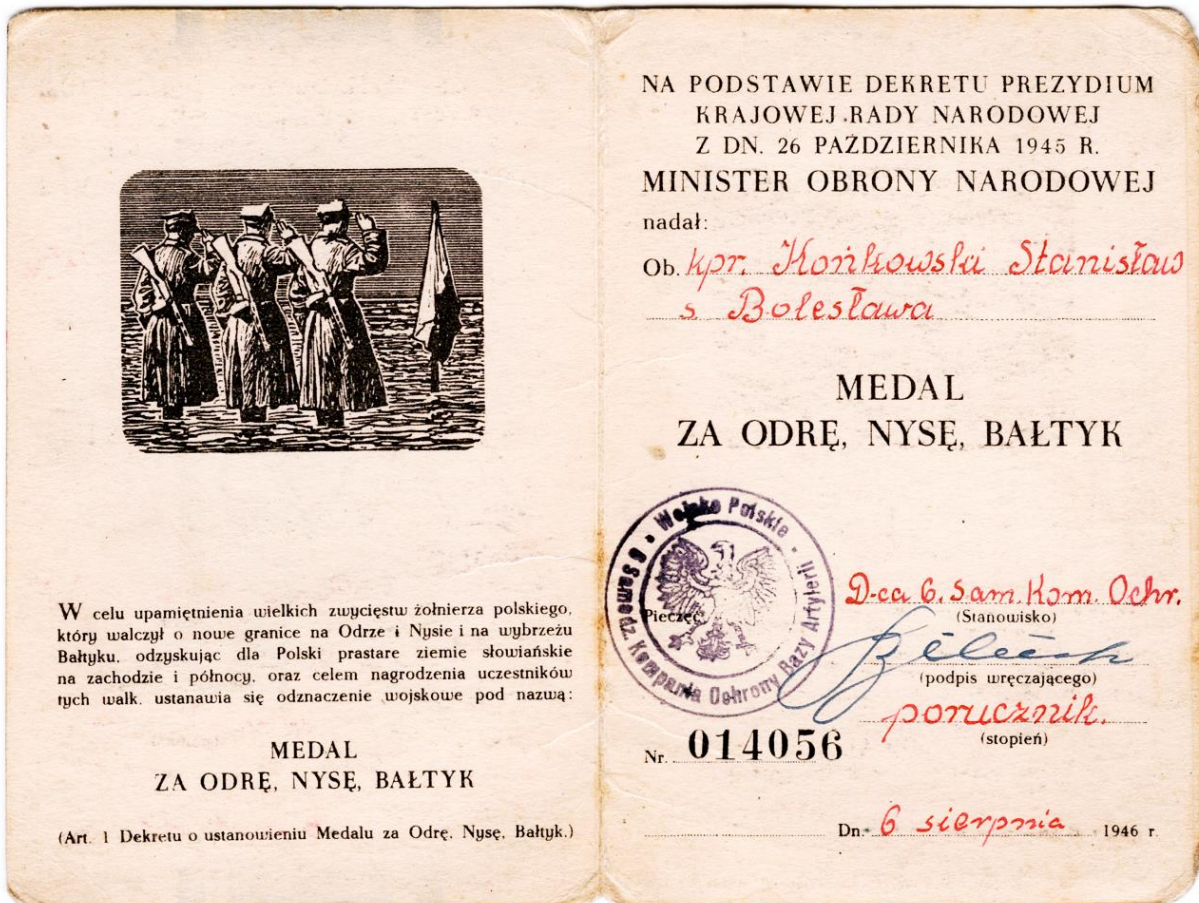 W celu upamiętnienia wielkich zwycięstw żołnierza polskiego,
który walczył o nowe granice na Odrze i Nysie i na wybrzeżu
Bałtyku, odzyskując dla Polski prastare ziemie słowiańskie
na zachodzie i północy, oraz celem nagrodzenia uczestników
tych walk, ustanawia się odznaczenie wojskowe pod nazwą:
MEDAL
ZA ODRĘ, NYSĘ, BAŁTYK
(Art. 1 Dekretu o ustanowieniu Medalu za Odrę, Nysę, Bałtyk.)
NA PODSTAWIE DEKRETU PREZYDIUM
KRAJOWEJ RADY NARODOWEJ
Z DN. 26 PAŹDZIERNIKA 1945 R.
MINISTER OBRONY NARODOWEJ
nadał:
Ob. kpr. Końkowski Stanisław
s Bolesława
MEDAL
ZA ODRĘ, NYSĘ, BAŁTYK
Wojsko Polskie
6 Samodz Kompania Ochrony Bazy Artylerii
Pieczęć
D-ca 6. Sam. Kom. Ochr.
(Stanowisko)
(podpis wręczającego)
porucznik.
(stopień)
Nr. 014056
Dn. 6 sierpnia 1946 r.